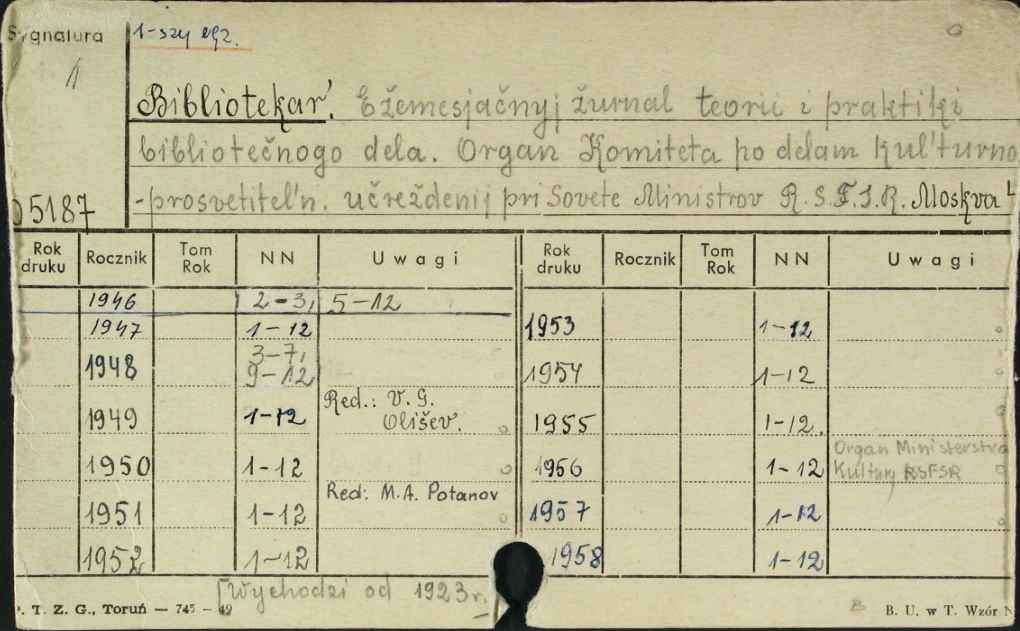 Sygnatura 1-szy egz.
1
Bibliotekar'. Ežemesjačnyj žurnal teorii i praktiki
bibliotečnogo dela. Organ Komiteta po delam kul'turno
-prosvetitel'n. učreždenij pri Sovete Ministrov R.S.F.S.R. Moskva
05187
Rok druku Rocznik Tom Rok NN Uwagi Rok druku Rocznik Tom Rok NN Uwagi
1946 2-3, 5-12
1947 1-12 1953 1-12
1948 3-7, 9-12 1954 1-12
1949 1-12 Red.: V. G. Olišev. 1955 1-12.
1950 1-12 1956 1-12 Organ Ministerstva Kultury RSFSR
1951 1-12 Red: M.A. Potapov 1957 1-12
1952 1-12 1958 1-12
[Wychodzi od 1923 r.
P. T. Z. G., Toruń — 745 — 49 B. U. w T. Wzór N